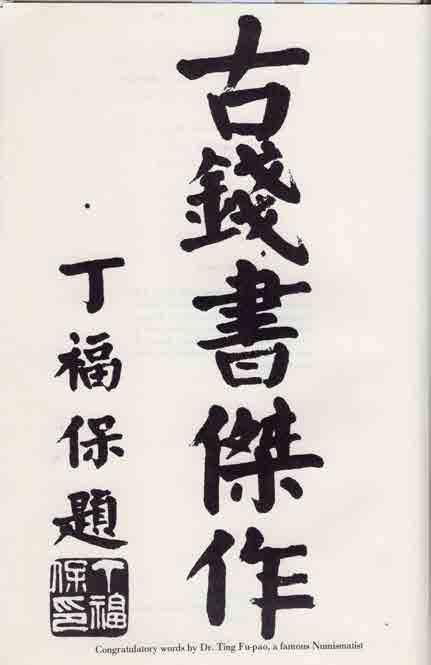 古錢書傑作
丁福保題
丁福保印
Congratulatory words by Dr. Ting Fu-pao, a famous Numismatist